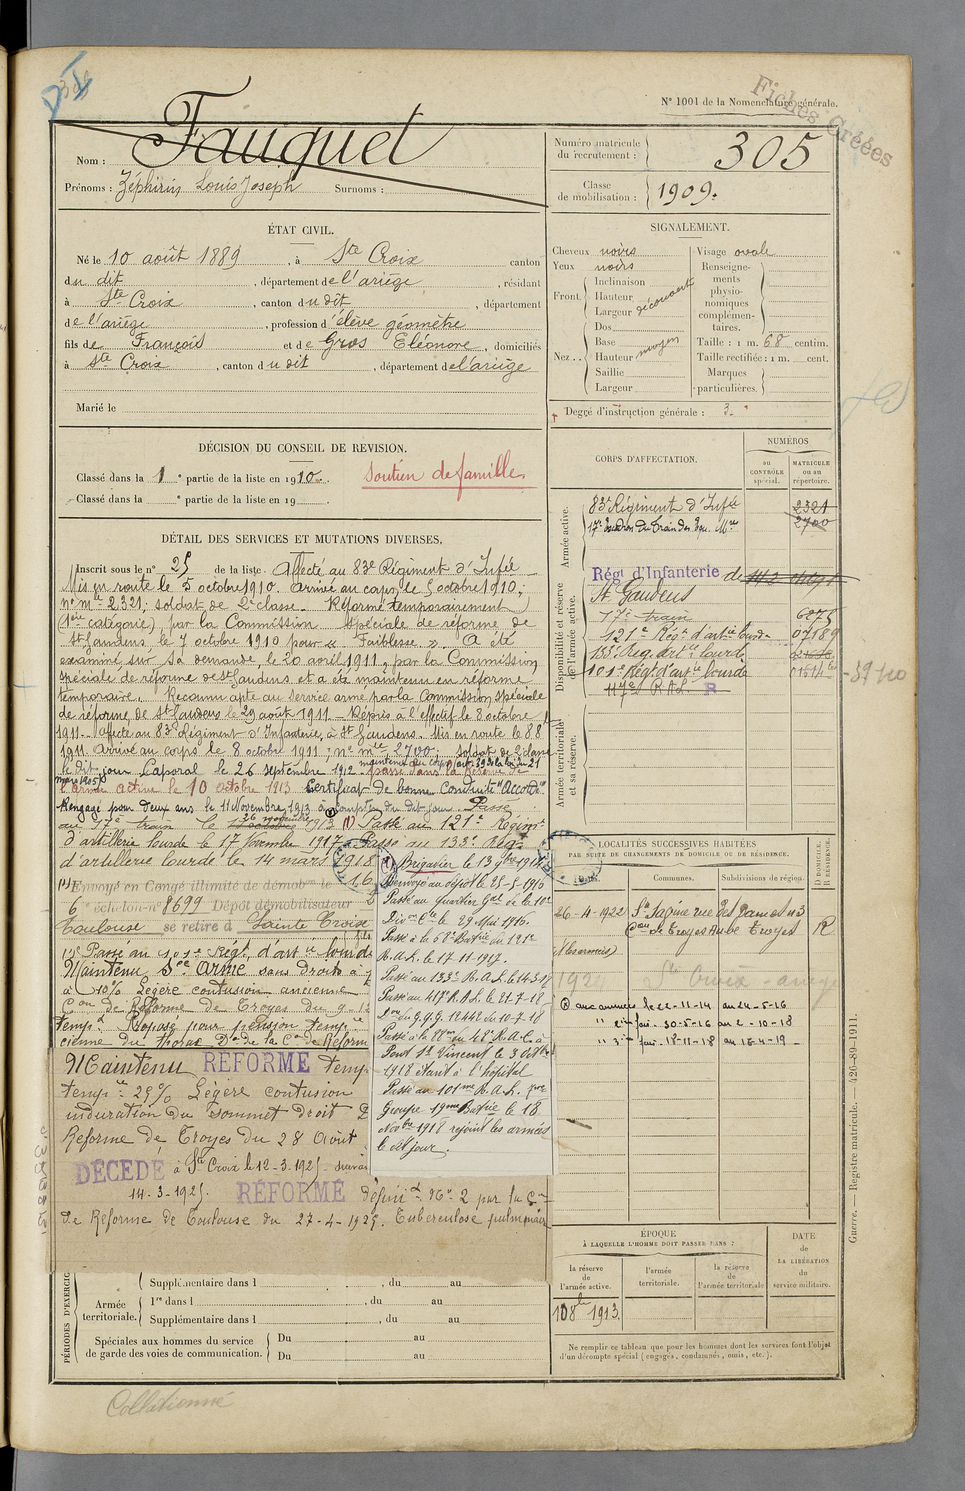 Fiches Créées
N° 1001 de la Nomenclature générale.
Nom : Fauquet
Prénoms : Zéphirin Louis Joseph Surnoms :
Numéro matricule du recrutement : 305
Classe de mobilisation : 1909.
ÉTAT CIVIL.
Né le 10 août 1889, à Ste Croix canton
du dit, département de l'ariège, résidant
à Ste Croix, canton du dit, département
de l'ariège, profession d'élève géomètre
fils de François et de Gros Eléonore, domiciliés
à Ste Croix, canton du dit, département de l'ariège
Marié le
SIGNALEMENT.
Cheveux noirs
Yeux noirs
Front. Inclinaison
Hauteur
Largeur découvert
Nez.. Dos
Base
Hauteur moyen
Saillie
Largeur
Visage ovale
Renseigne-
ments
physio-
nomiques
complémen-
taires.
Taille : 1 m. 68 centim.
Taille rectifiée : 1 m. cent.
Marques
particulières.
Degré d'instruction générale : 3.
DÉCISION DU CONSEIL DE REVISION.
Classé dans la 1e partie de la liste en 1910.
Classé dans la e partie de la liste en 19
Soutien de famille
CORPS D'AFFECTATION.
NUMÉROS
au CONTRÔLE spécial.
MATRICULE ou au répertoire.
Armée active.
83e Régiment d'Infie 2321
17e Escadron du Train des Equ. Mres 2700
Disponibilité et réserve de l'armée active.
Régt d'Infanterie de
St Gaudens
17e train 6275
121e Régt d'artie lourde 07189
133e Rég. d'artie lourde
101e Régt d'artie lourde
117e R.A.L. R
Armée territoriale et sa réserve.
DÉTAIL DES SERVICES ET MUTATIONS DIVERSES.
Inscrit sous le n° 25 de la liste. Affecté au 83e Régiment d'Infie
Mis en route le 5 octobre 1910. Arrivé au corps le 5 octobre 1910;
n° mle 2321; soldat de 2e classe. Réformé temporairement
(1ère catégorie) par la Commission spéciale de réforme de
St Gaudens, le 7 octobre 1910 pour « Faiblesse ». A été
examiné sur sa demande, le 20 avril 1911, par la Commission
spéciale de réforme de St Gaudens et a été maintenu en réforme
temporaire. Reconnu apte au service armé par la Commission spéciale
de réforme de St Gaudens le 29 août 1911. Repris à l'effectif le 8 octobre
1911. affecté au 83e Régiment d'Infanterie, à St Gaudens. Mis en route le 8 8
1911. Arrivé au corps le 8 octobre 1911; n° mle 2700; soldat de 2e classe
le dit jour Caporal le 26 septembre 1912. maintenu au corps (art. 33 de la loi du 21
mars 1905) passé dans la Réserve de
l'armée active le 10 octobre 1913 Certificat de bonne conduite "Accordé"
Rengagé pour deux ans le 11 Novembre 1913 à compter du dit jour. Passé
au 17e train le 26 novembre 1913 (1) Passé au 121e Régimt
d'artillerie lourde le 17 Novembre 1917 Passé au 133e Régt
d'artillerie lourde le 14 mars 1918
Envoyé en Congé illimité de démob. le 16
6e échelon n° 8699 Dépôt démobilisateur
Toulouse se retire à Sainte Croix
Passé au 101e Régt d'artie lourde
Maintenu Sce Armé sans droits à
à 10% Légère contusion ancienne
Con de Réforme de Troyes du 9-12
tempe Proposé pour pension tempre
cienne du thorax Don de la Con de Réform
Maintenu RÉFORMÉ temp
tempre 25% Légère contusion
induration du sommet droit
Réforme de Troyes du 28 août
DÉCÉDÉ à Ste Croix le 12-3-1925 suivan
14-3-1925. RÉFORMÉ définit N° 2 par la Con
de Réforme de Toulouse du 27-4-1925. Tuberculose pulmonaire
(1) Brigadier le 13 9bre 1914
Renvoyé au dépôt le 25-5-1916
Passé au Quartier Gal de la 10e
Divon Cle le 29 Mai 1916.
Passé à la 68e Battie du 121e
R.A.L. le 17-11-1917.
Passé au 133e R.A.L. le 14-3-18
Passé au 417e R.A.L. le 21-7-18
Don du G.Q.G. 12442 du 10-7-18
Passé à la 88e du 48e R.A.C. à
Pont St Vincent le 3 Octbre
1918 étant à l'hôpital
Passé au 101me R.A.L. 1er
Groupe 19me Battie le 18
Novbre 1918 rejoint les armées
le dit jour.
LOCALITÉS SUCCESSIVES HABITÉES
PAR SUITE DE CHANGEMENTS DE DOMICILE OU DE RÉSIDENCE.
Communes. Subdivisions de région. D DOMICILE. R RÉSIDENCE.
26-4-1922 Ste Savine rue des Dames n°3
Con de Troyes Aube Troyes R
1920 Ste Croix - ariège
aux armées le 22-11-14 au 24-5-16
" 2e fois - 30-5-16 au 2-10-18
" 3e fois - 18-11-18 au 16-4-19
ÉPOQUE
À LAQUELLE L'HOMME DOIT PASSER DANS :
la réserve de l'armée active.
l'armée territoriale.
la réserve de l'armée territoriale
DATE DE LA LIBÉRATION du service militaire.
10 8bre 1913.
Ne remplir ce tableau que pour les hommes dont les services font l'objet
d'un décompte spécial (engagés, condamnés, omis, etc.).
PÉRIODES D'EXERCIC
Supplémentaire dans l , du au
Armée territoriale. 1re dans l , du au
Supplémentaire dans l , du au
Spéciales aux hommes du service
de garde des voies de communication. Du au
Du au
Guerre. — Registre matricule. — 426-89-1911.
Collationné